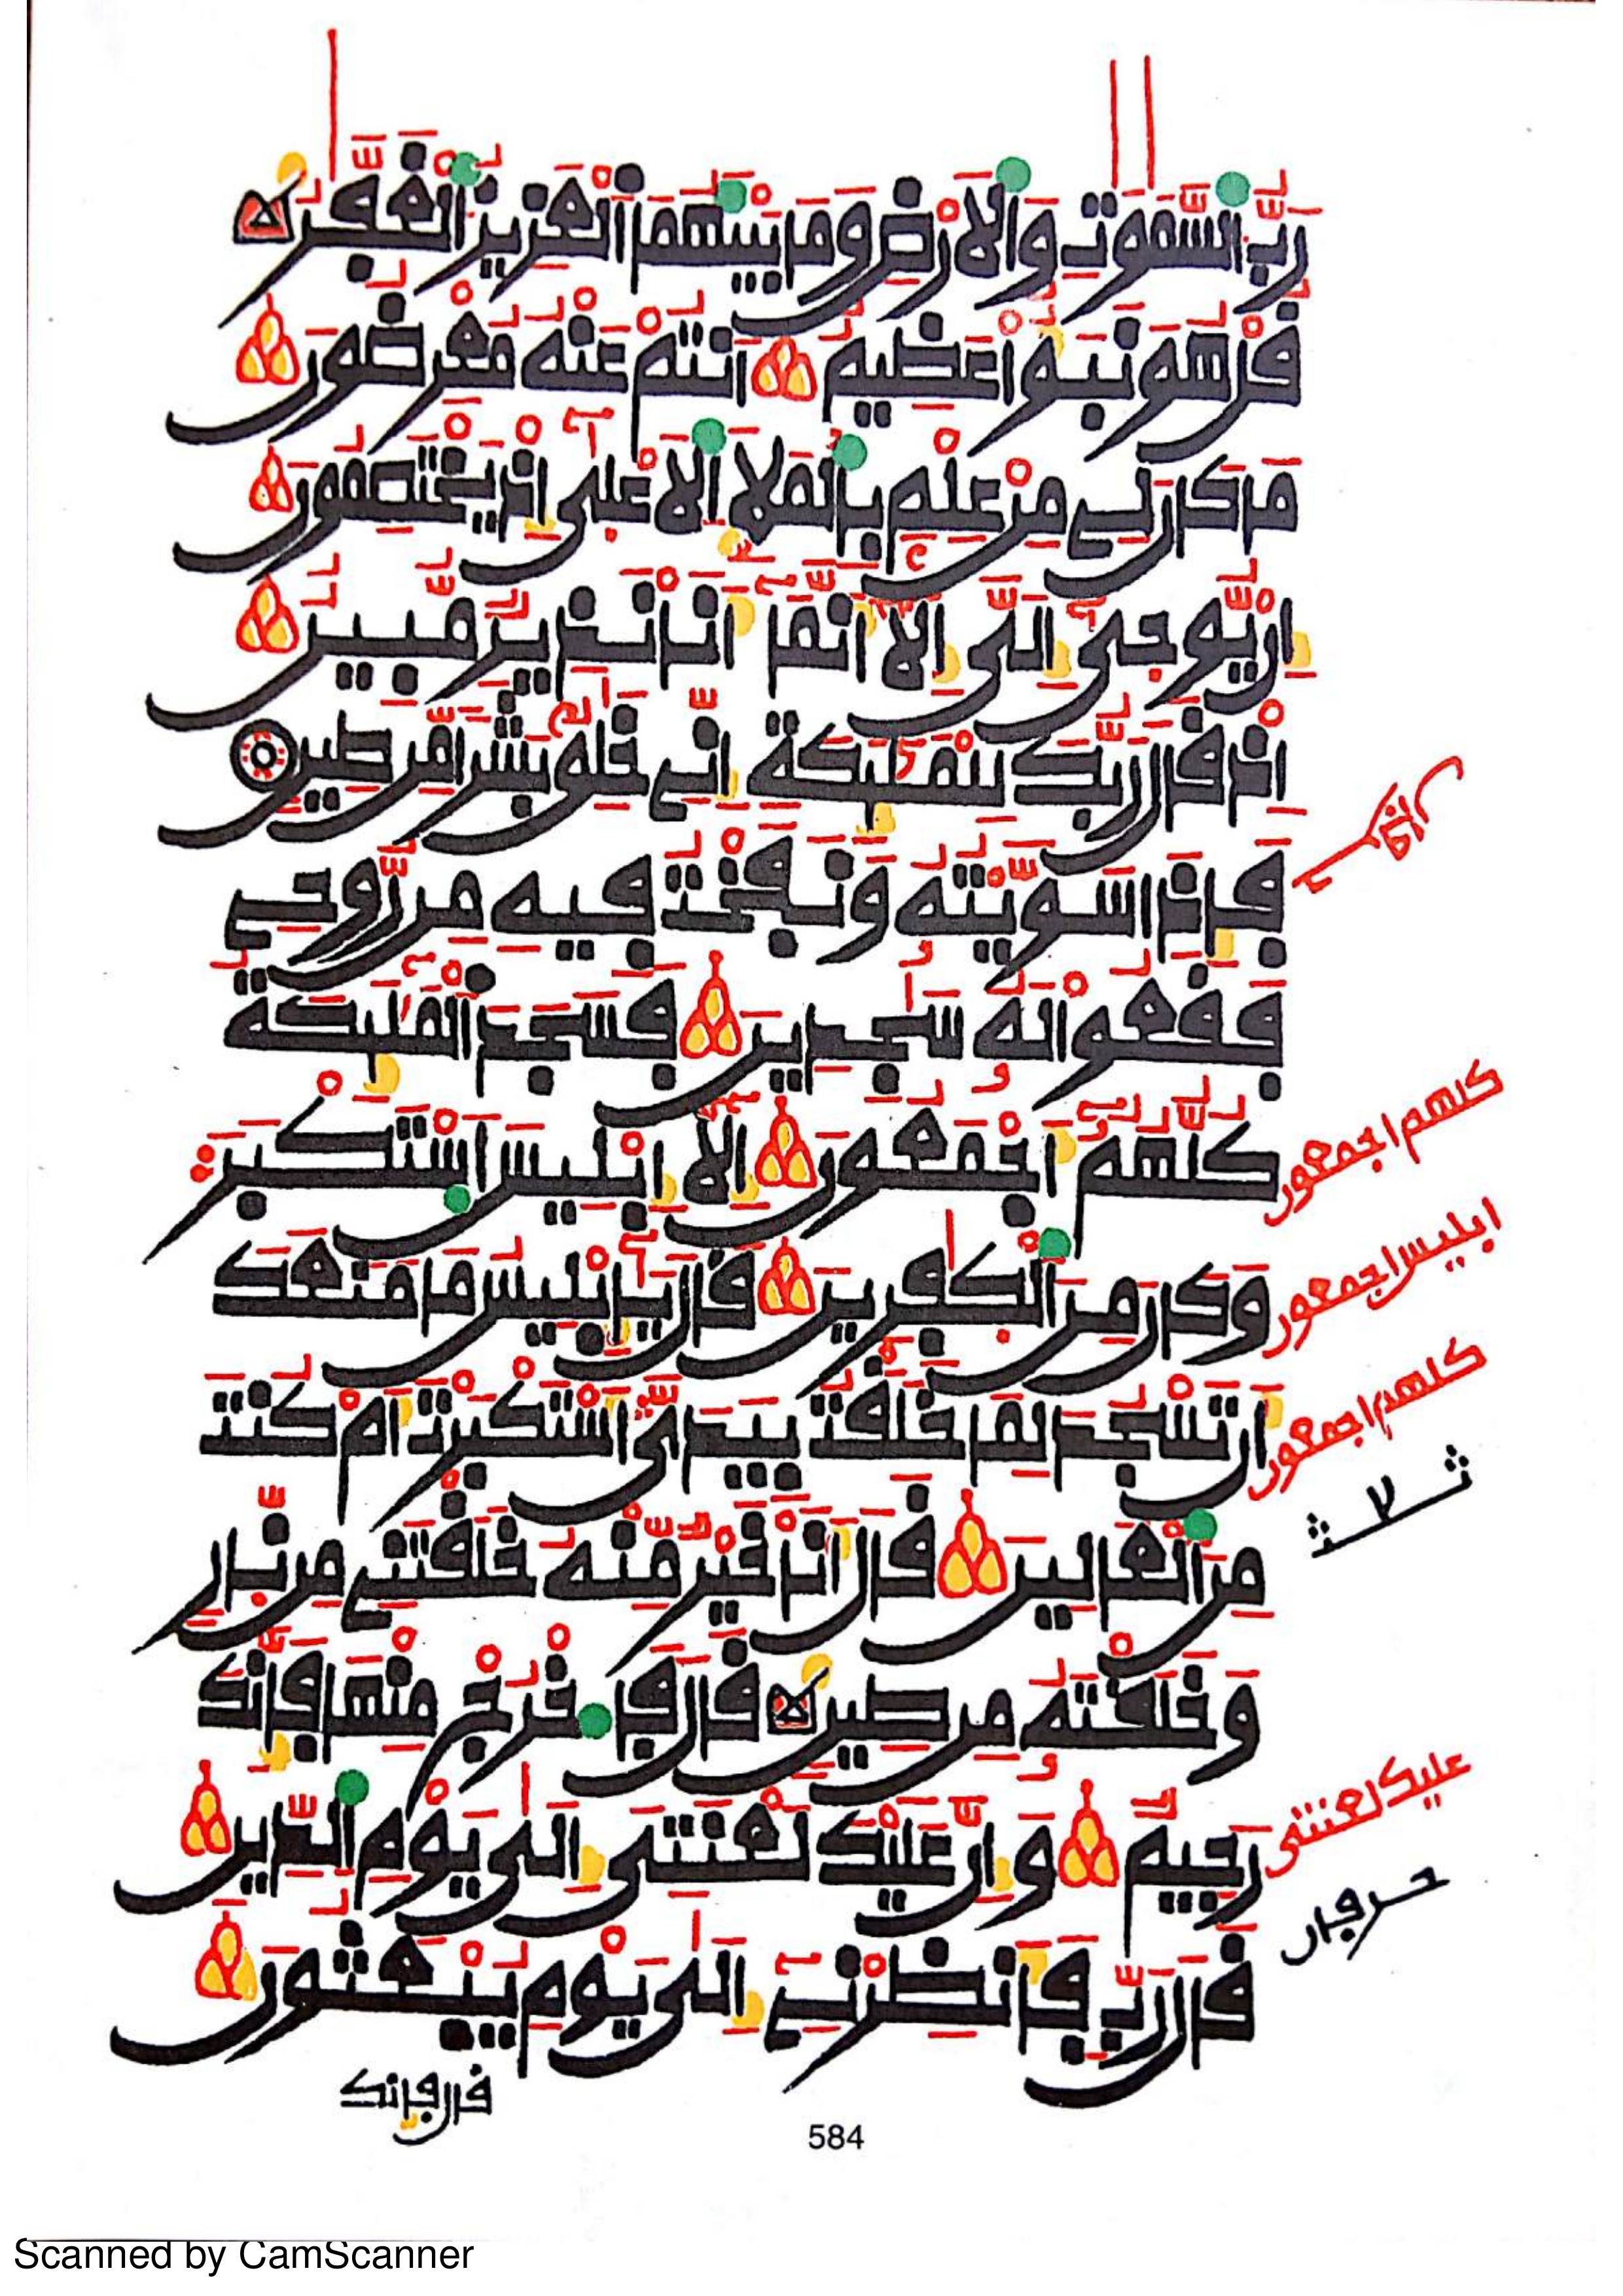 رَبُّ السَّمَٰوَٰتِ وَالْأَرْضِ وَمَا بَيْنَهُمَا الْعَزِيزُ الْغَفَّٰرُ
قُلْ هُوَ نَبَؤٌا عَظِيمٌ أَنتُمْ عَنْهُ مُعْرِضُونَ
مَا كَانَ لِي مِنْ عِلْمٍ بِالْمَلَإِ الْأَعْلَىٰ إِذْ يَخْتَصِمُونَ
إِنْ يُّوحَىٰ إِلَيَّ إِلَّا أَنَّمَا أَنَا نَذِيرٌ مُّبِينٌ
إِذْ قَالَ رَبُّكَ لِلْمَلَٰئِكَةِ إِنِّي خَٰلِقٌ بَشَرًا مِّن طِينٍ
فَإِذَا سَوَّيْتُهُ وَنَفَخْتُ فِيهِ مِن رُّوحِي
فَقَعُوا لَهُ سَٰجِدِينَ فَسَجَدَ الْمَلَٰئِكَةُ
كُلُّهُمْ أَجْمَعُونَ إِلَّا إِبْلِيسَ اسْتَكْبَرَ
وَكَانَ مِنَ الْكَٰفِرِينَ قَالَ يَٰإِبْلِيسُ مَا مَنَعَكَ
أَن تَسْجُدَ لِمَا خَلَقْتُ بِيَدَيَّ أَسْتَكْبَرْتَ أَمْ كُنتَ
مِنَ الْعَالِينَ قَالَ أَنَا خَيْرٌ مِّنْهُ خَلَقْتَنِي مِن نَّارٍ
وَخَلَقْتَهُ مِن طِينٍ قَالَ فَاخْرُجْ مِنْهَا فَإِنَّكَ
رَجِيمٌ وَإِنَّ عَلَيْكَ لَعْنَتِي إِلَىٰ يَوْمِ الدِّينِ
قَالَ رَبِّ فَأَنظِرْنِي إِلَىٰ يَوْمِ يُبْعَثُونَ
كلهم اجمعون
ابليس اجمعون
كلهم اجمعون
عليك لعنتى
قال فإنك
584
Scanned by CamScanner